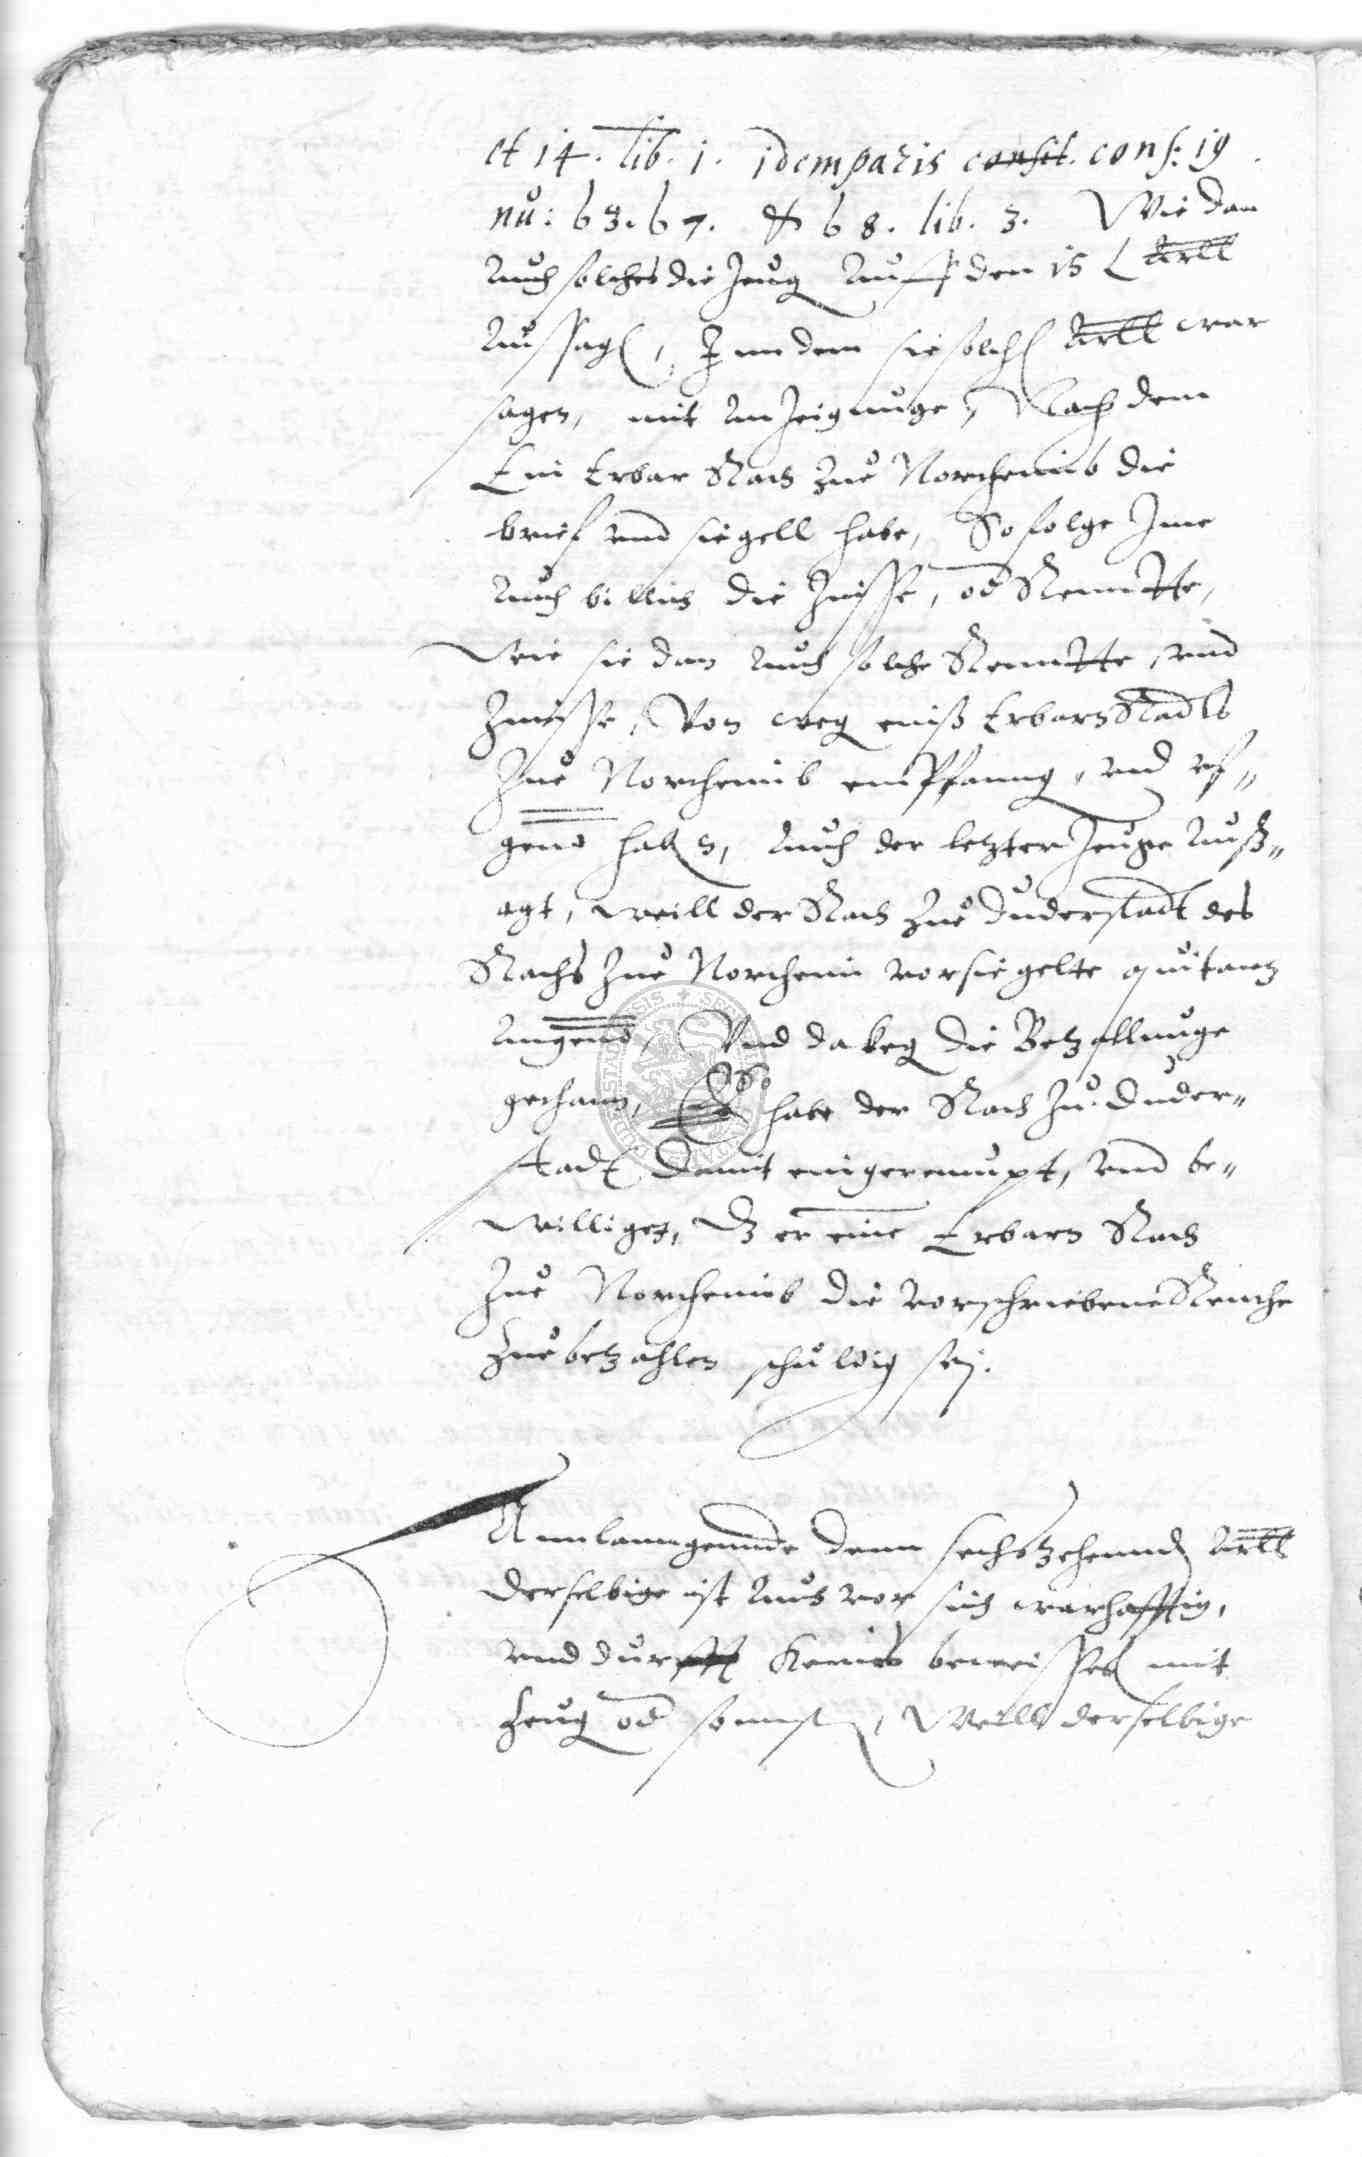 et 14. lib. 1. idem paris const. cons: 19.
nu: 63. 67. & 68. lib. 3. Wie dan
auch solches die Zeug auff den 15 Artll
aussag, Inn dem sie solch Artll war
sagen, mit anzeignuge, Nach dem
Ein Erbar Rath zue Northeimb die
brief und siegell habe, So folge Ime
auch billich die Zinsse, od Rennthe,
Wie sie dan auch solche Rennthe, und
Zinsse, Von weg eins Erbarn Radts
Zue Northeimb empfanng, und
haben, auch der letzter Zeuge auß„
agt, weill der Rath zue Duderstadt des
Raths zue Northeim vorsiegelte quitantz
angeno, Und dakeg die Betzallunge
gethann, So habe der Rath zu Duder„
stadt damit eingereumpt, und be„
williget, dz er eine Erbarn Rath
Zue Northeimb die vorschriebene Renthe
Zue betzahlen schuldig sej.
Annlanngennde denn sechtzehennd Artll
derselbige ist aus vor sich warhafftig,
und durff keines beweisses mit
Zeug od sonnst, Weill derselbige